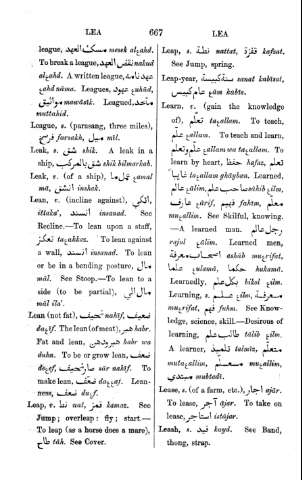 LEA 667 LEA
league, مسك العهد mesek al<u>e</u>ahd.
To break a league, نقض العهد nakud
al<u>e</u>ahd. A written league, عهد نامه
<u>e</u>ahd nāma. Leagues, عهود <u>e</u>ahūd,
مواثيق mawāsik. Leagued, متحد
muttahid.
League, s. (parasang, three miles),
فرسخ farsakh, ميل mīl.
Leak, s. شق shik. A leak in a
ship, شق بالمركب shik bilmarkab.
Leak, v. (of a ship),
mā, انشق inshak.
Lean, v. (incline against), اتكى
ittaka', انسند insanad. See
Recline.—To lean upon a staff,
تعكز ta<u>e</u>ahkaz. To lean against
a wall, انسند insanad. To lean
or be in a bending posture, مال
māl. See Stoop.—To lean to a
side (to be partial), مال الي
māl ila'.
Lean (not fat), نحيف nahīf, ضعيف
da<u>e</u>īf. The lean (of meat), هبر habr.
Fat and lean, هبر ودهن habr wa
duhn. To be or grow lean, ضعف
do<u>e</u>of, صار نحيف sār nahīf. To
make lean, ضعف da<u>e</u><u>e</u>af. Lean-
ness, ضعف du<u>e</u>f.
Leap, v. نط nut, قمز kamaz. See
Jump; overleap: fly; start.—
To leap (as a horse does a mare),
طاح tāh. See Cover.
Leap, s. نطة nattat, قفزة kafzat.
See Jump, spring.
Leap-year, سنة كبيسة sanat kabīsat,
عام كبيس <u>e</u>ām kabīs.
Learn, v. (gain the knowledge
of), تعلم ta<u>e</u>allam. To teach,
علم <u>e</u>allam. To teach and learn,
علم وتعلم <u>e</u>allam wa ta<u>e</u>allam. To
learn by heart, حفظ hafaz, تعلم
غايبا ta<u>e</u>allam ghāyban. Learned,
عالم <u>e</u>ālim, صاحب علم sāhib <u>e</u>ilm,
عارف <u>e</u>ārif, فهيم fahīm, معلم
mu<u>e</u>allim. See Skilful, knowing.
—A learned man. رجل عالم
rajul <u>e</u>ālim. Learned men,
اصحاب معرفة ashāb mu<u>e</u>rifat,
علما <u>e</u>ulamā, حكما hukamā.
Learnedly, بكل علم bikol <u>e</u>ilm.
Learning, s. علم <u>e</u>ilm, معرفة
mu<u>e</u>rifat, فهم fuhm. See Know-
ledge, science, skill.—Desirous of
learning, طالب علم tālib <u>e</u>ilm.
A learner, تلميذ talmīz, متعلم
muta<u>e</u>allim, معلم mu<u>e</u>allim,
مبتدي mubtadi.
Lease, s. (of a farm, etc.), اجار ajār.
To lease, آجر ajar. To take on
lease, استاجر istājar.
Leash, s. قيد kayd. See Band,
thong, strap.